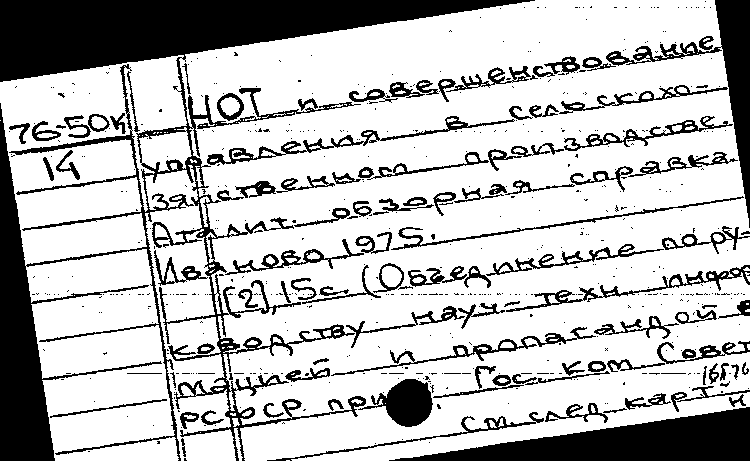 76-50к
14
НОТ и совершенствование
управления в сельскохо-
зяйственном производстве.
Аналит. обзорная справка.
Иваново, 1975.
[2], 15с. (Объединение по ру-
ководству науч-техн. инфор
мацией и пропагандой в
РСФСР при Гос. ком Совет
См. след карт